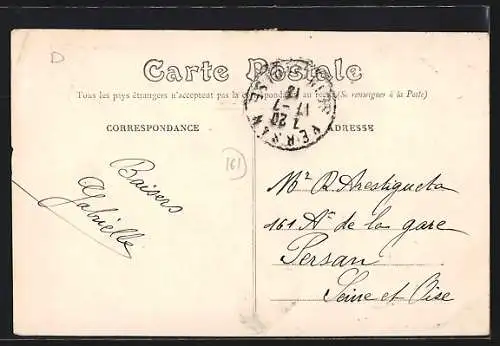 D
Carte Postale
Tous les pays étrangers n'acceptent pas la correspondance au recto (Se renseigner à la Poste)
CORRESPONDANCE
ADRESSE
PERSAN
7 20
17-7
12
161
Baisers
Gabrielle
Mr R. Arestigueta
161 Av de la gare
Persan
Seine et Oise